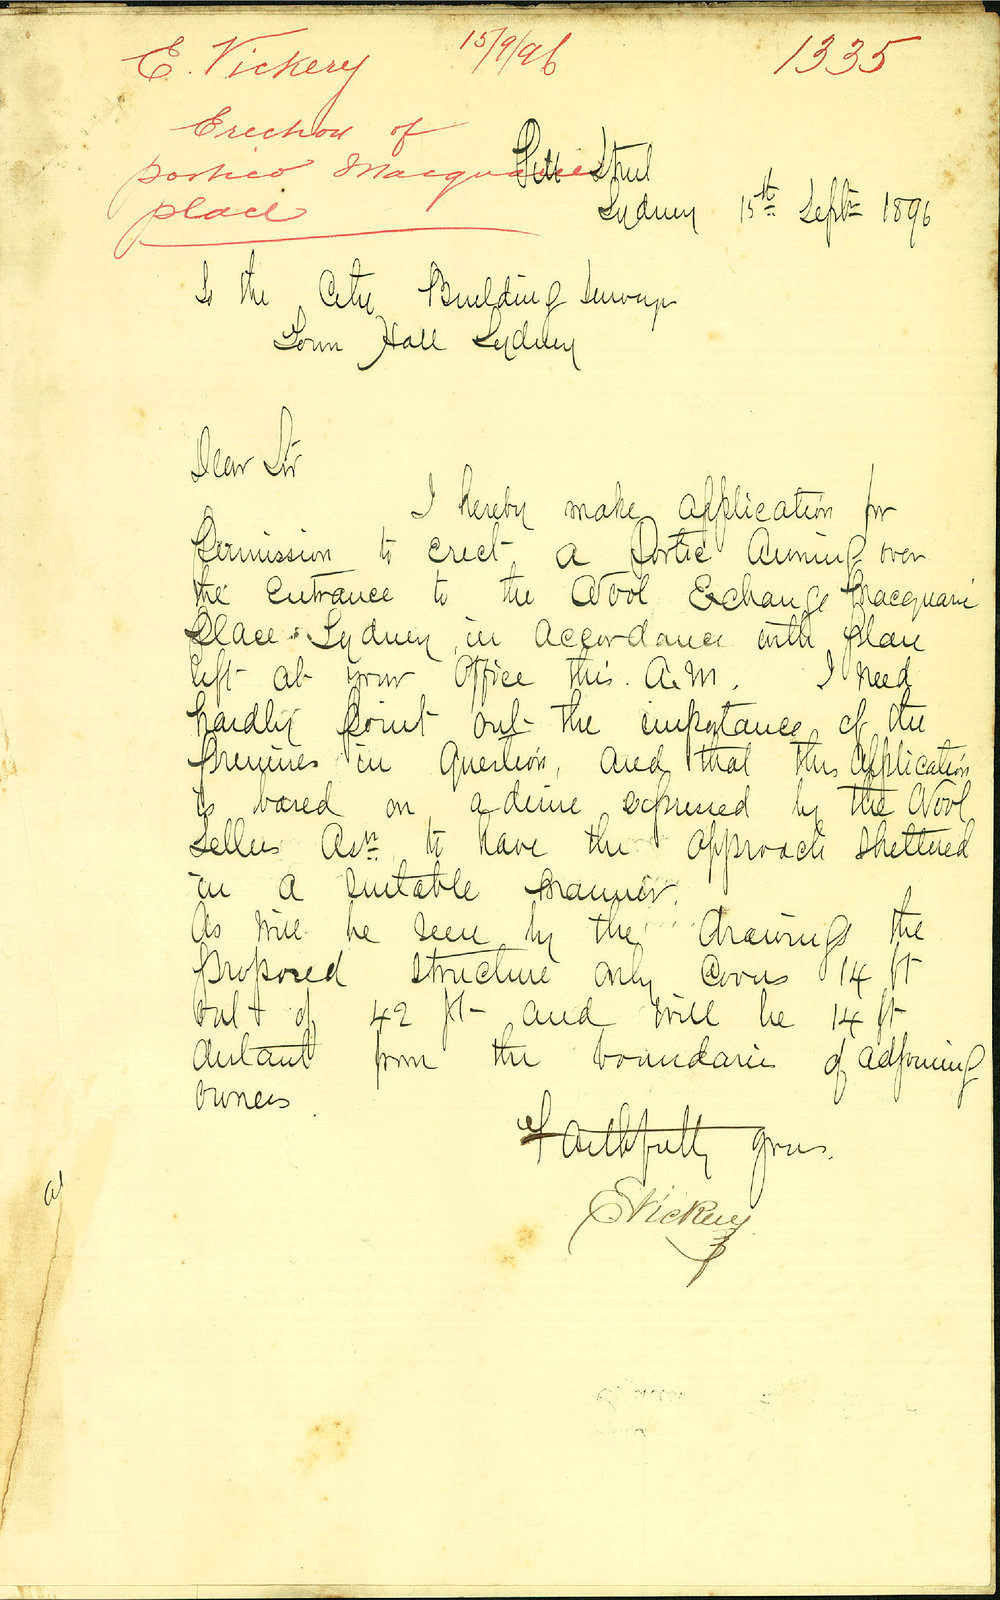 E. Vickery 15/9/96 1335
Erection of
portico Macquarie
place
Pitt Street
Sydney 15th Septr 1896
To the City Building Surveyor
Town Hall Sydney
Dear Sir
I hereby make application for
Permission to erect a Portic Awning over
the Entrance to the Wool Exchange Macquarie
Place Sydney in accordance with plan
left at your Office this A.M. I need
hardly point out the importance of the
Premises in question, and that this application
is based on a desire expressed by the Wool
Sellers Assn. to have the approach sheltered
in a suitable manner.
As will be seen by the drawings the
proposed structure only covers 14 ft
out of 42 ft and will be 14 ft
distant from the boundaries of adjoining
owners.
Faithfully yours.
E Vickery